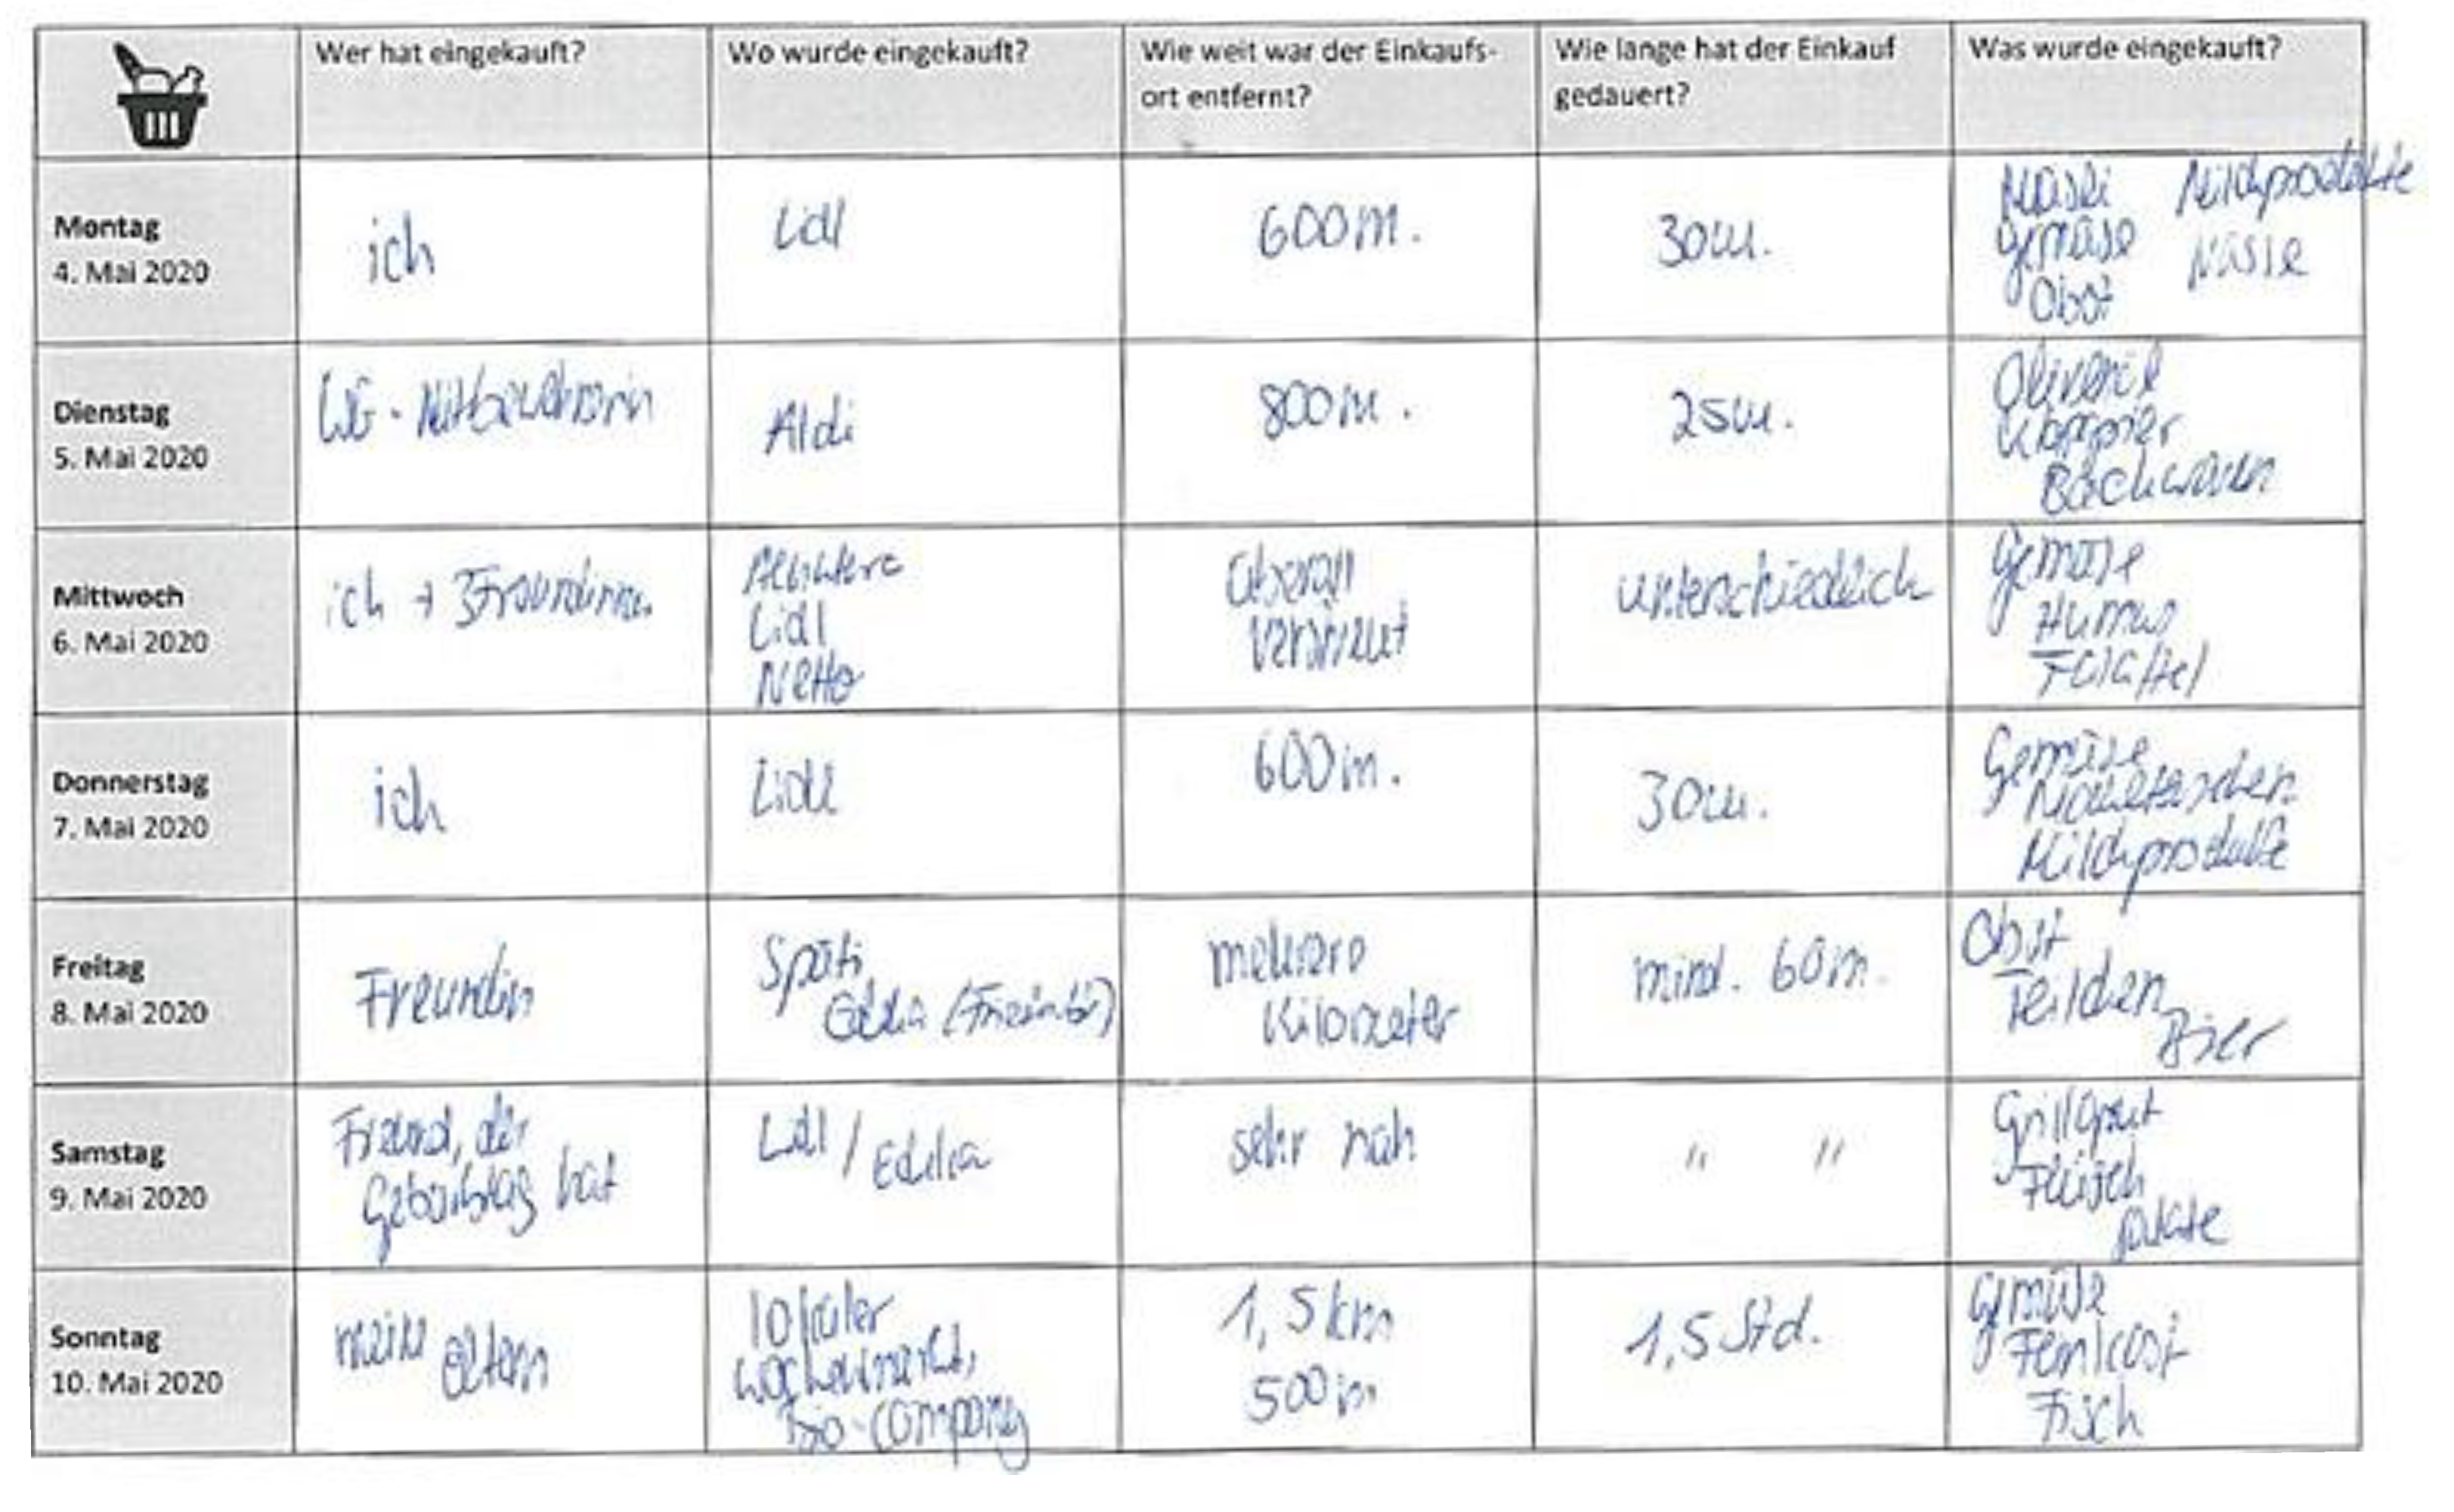 Wer hat eingekauft?
Wo wurde eingekauft?
Wie weit war der Einkaufs-
ort entfernt?
Wie lange hat der Einkauf
gedauert?
Was wurde eingekauft?
Montag
4. Mai 2020
ich
Lidl
600 m.
30 m.
Müsli Milchprodukte
Gemüse Nüsse
Obst
Dienstag
5. Mai 2020
WG-Mitbewohnerin
Aldi
800 m.
25 m.
Olivenöl
Klopapier
Backwaren
Mittwoch
6. Mai 2020
ich + 3 Freundinnen
Lidl
Netto
überall
verstreut
unterschiedlich
Gemüse
Humus
Falaffel
Donnerstag
7. Mai 2020
ich
Lidl
600 m.
30 m.
Gemüse
Milchprodukte
Freitag
8. Mai 2020
Freundin
Späti
Edeka
mehrere
Kilometer
mind. 60 m.
Obst
Teilchen
Bier
Samstag
9. Mai 2020
Freund, der
Geburtstag hat
Lidl / Edeka
sehr nah
" "
Grillgut
Fleisch
Sonntag
10. Mai 2020
meine Eltern
lokaler
Wochenmarkt,
Bio-Company
1,5 km
500 m
1,5 Std.
Gemüse
Feinkost
Fisch